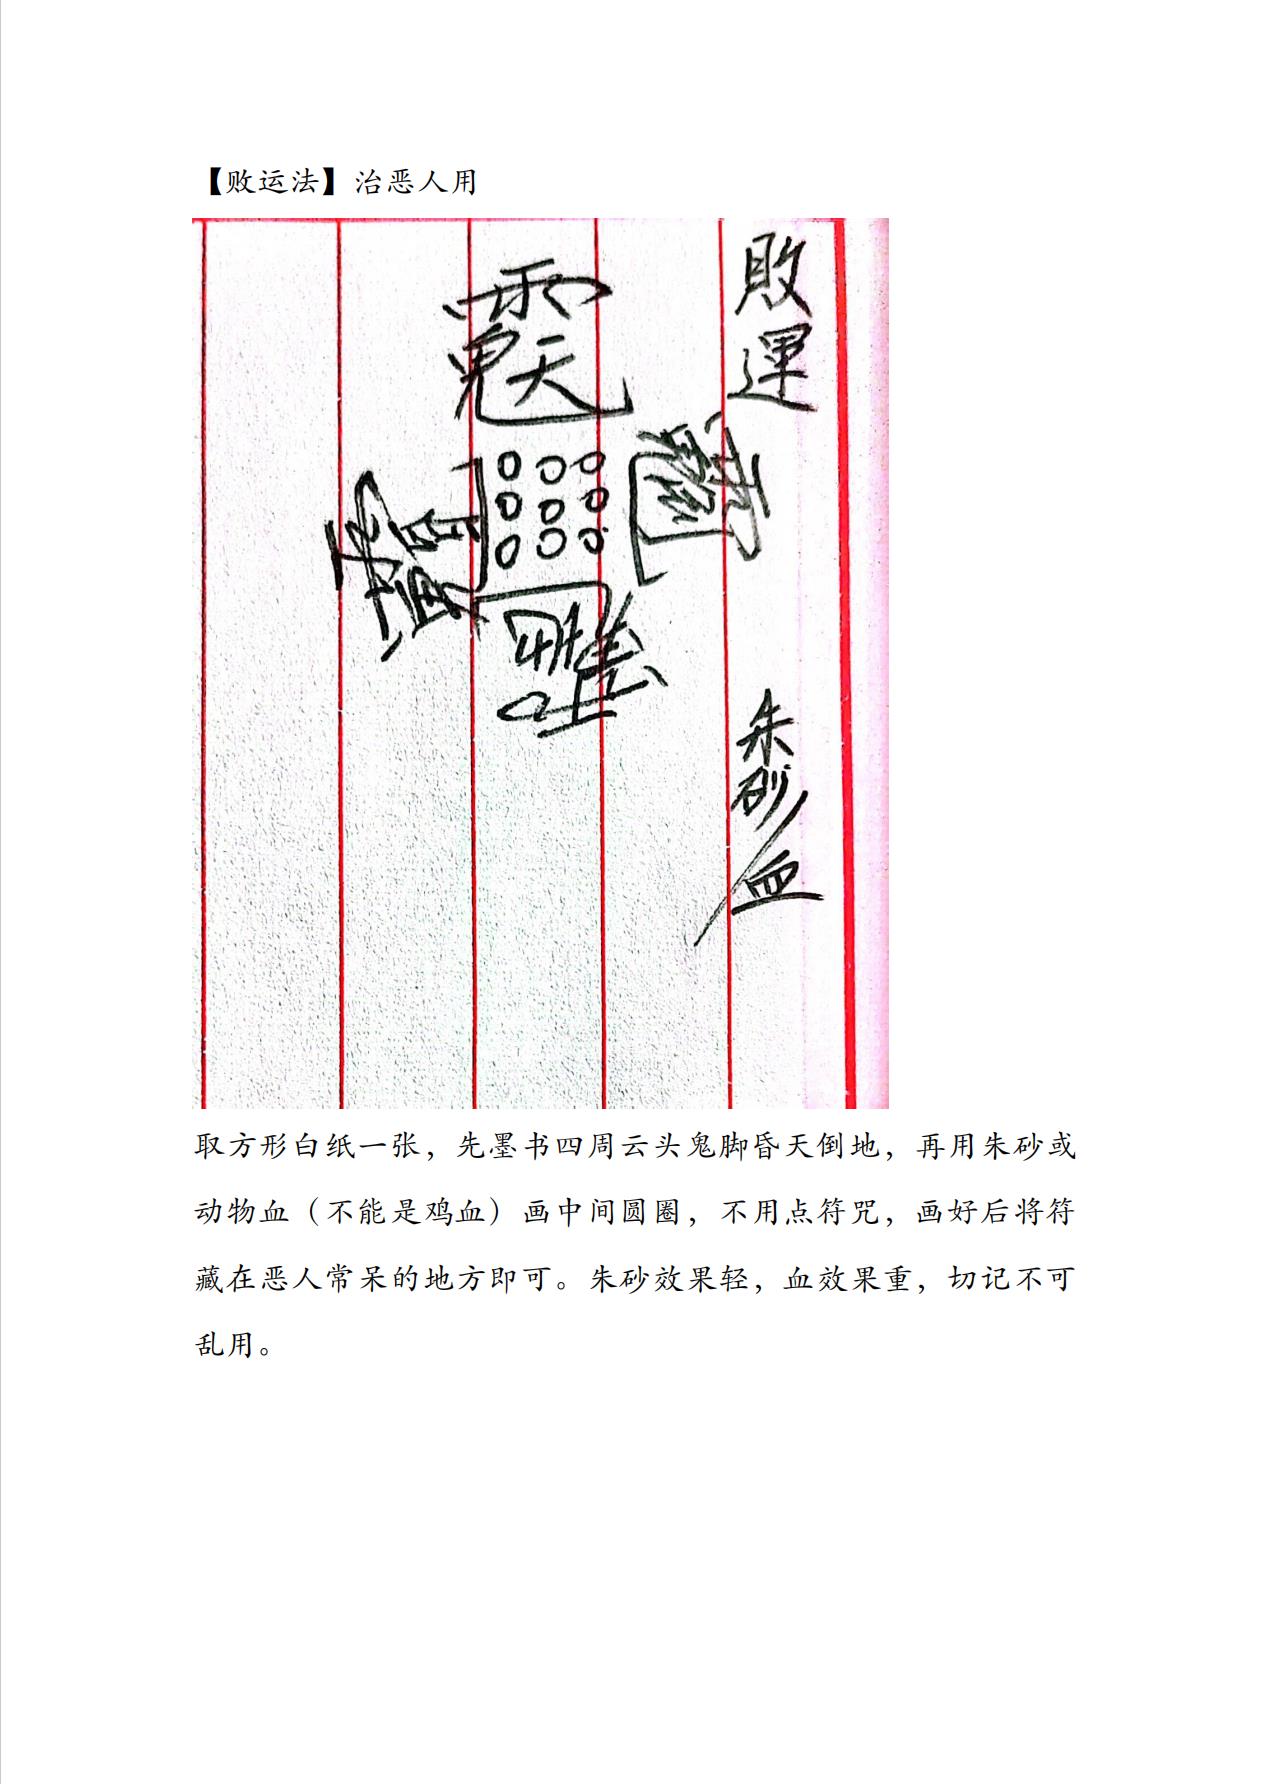 【败运法】治恶人用
敗運
朱砂/血
取方形白纸一张，先墨书四周云头鬼脚昏天倒地，再用朱砂或
动物血（不能是鸡血）画中间圆圈，不用点符咒，画好后将符
藏在恶人常呆的地方即可。朱砂效果轻，血效果重，切记不可
乱用。